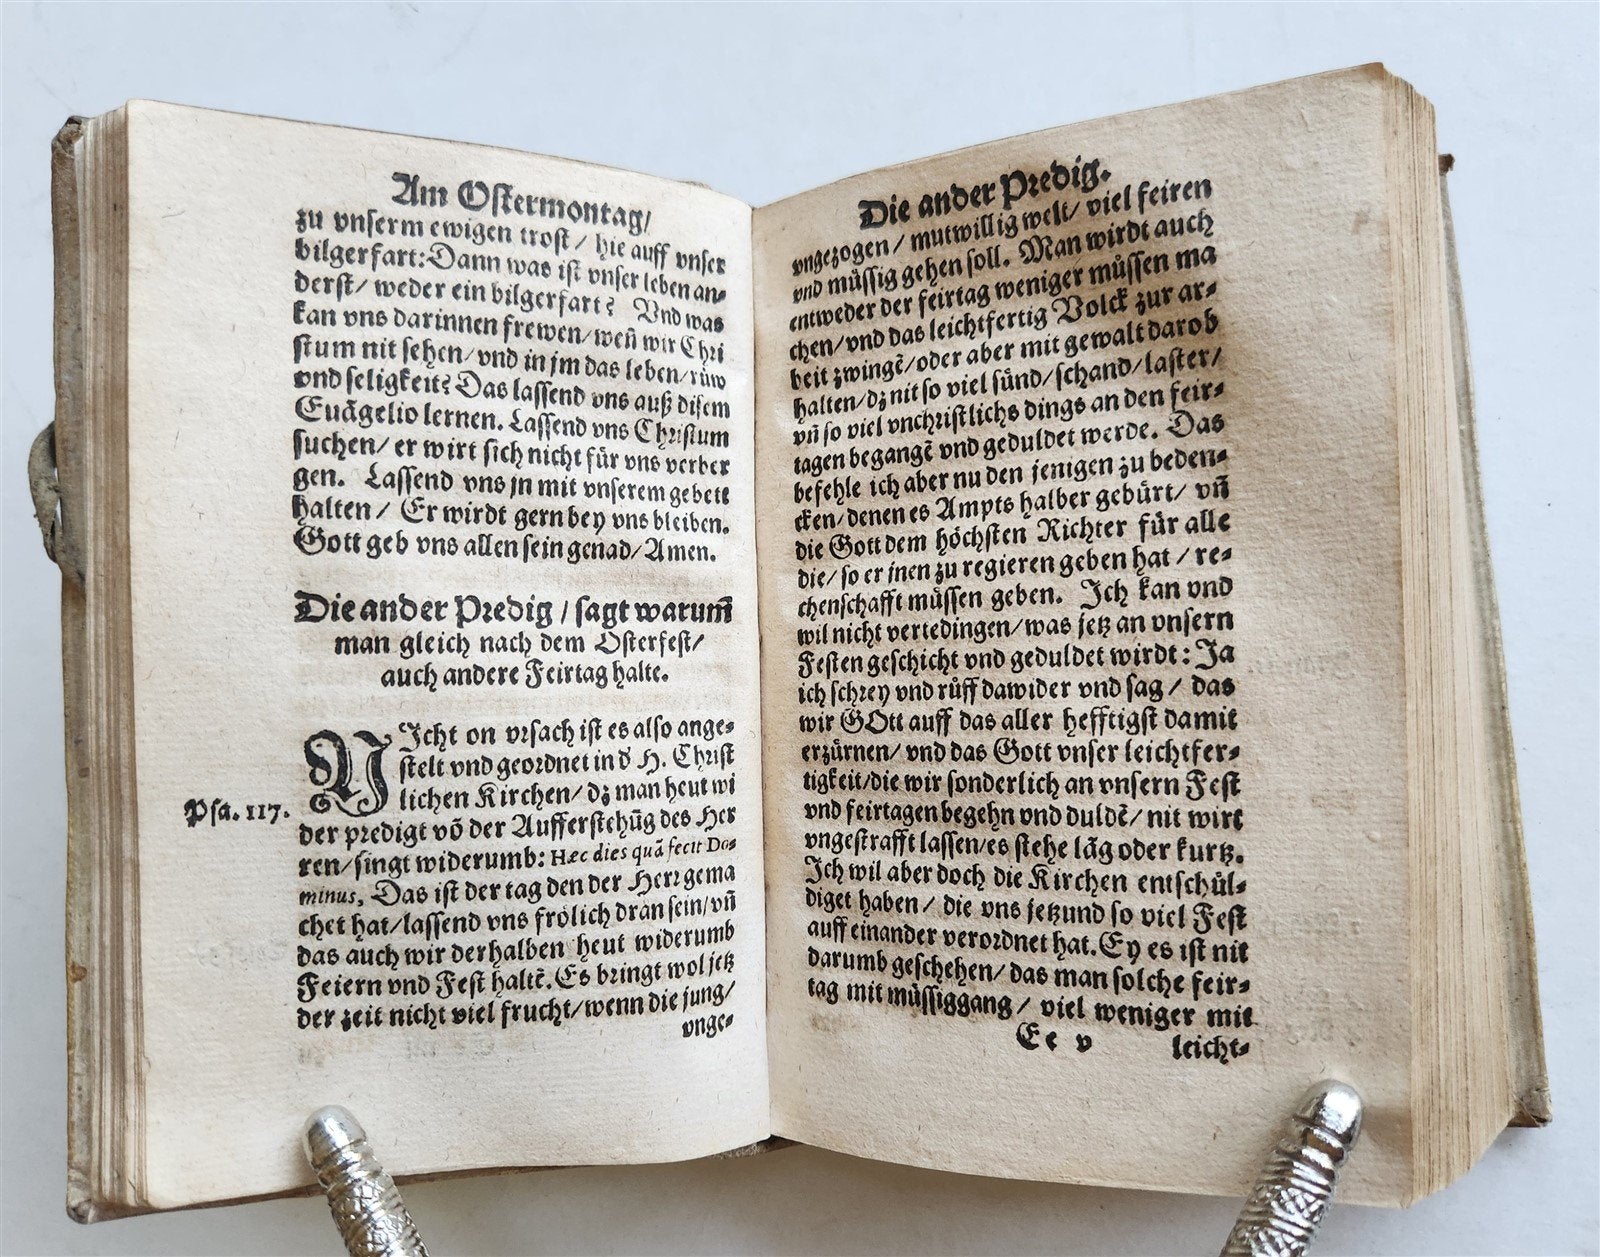 Am Ostermontag/
zu vnserm ewigen trost/ hie auff vnser
bilgerfart: Dann was ist vnser leben an-
derst/ weder ein bilgerfart? Vnd was
kan vns darinnen frewen/ weñ wir Chri
stum nit sehen/ vnd in jm das leben/ rüw
vnd seligkeit? Das lassend vns auß disem
Euãgelio lernen. Lassend vns Christum
suchen/ er wirt sich nicht für vns verber
gen. Lassend vns jn mit vnserem gebett
halten/ Er wirdt gern bey vns bleiben.
Gott geb vns allen sein genad/ Amen.
Die ander Predig/ sagt warum̃
man gleich nach dem Osterfest/
auch andere Feirtag halte.
NJcht on vrsach ist es also ange-
stelt vnd geordnet in d̓ H. Christ
lichen Kirchen/ dz man heut wi
Psa. 117.
der predigt võ der Aufferstehũg des Her
ren/ singt widerumb: Hæc dies quã fecit Do-
minus, Das ist der tag den der Herr gema
chet hat/ lassend vns frölich dran sein/ vñ
das auch wir derhalben heut widerumb
Feiern vnd Fest haltẽ. Es bringt wol jetz
der zeit nicht viel frucht/ wenn die jung/
vnge-
Die ander Predig.
vngezogen/ mutwillig welt/ viel feiren
vnd müssig gehen soll. Man wirdt auch
entweder der feirtag weniger müssen ma
chen/ vnd das leichtfertig Volck zur ar-
beit zwingẽ/ oder aber mit gewalt darob
halten/ dz nit so viel sünd/ schand/ laster/
vñ so viel vnchristlichs dings an den feir-
tagen begangẽ vnd geduldet werde. Das
befehle ich aber nu den jenigen zu beden-
cken/ denen es Ampts halber gebürt/ vñ
die Gott dem höchsten Richter für alle
die/ so er jnen zu regieren geben hat/ re-
chenschafft müssen geben. Ich kan vnd
wil nicht vertedingen/ was jetz an vnsern
Festen geschicht vnd geduldet wirdt: Ja
ich schrey vnd rüff dawider vnd sag/ das
wir GOtt auff das aller hefftigst damit
erzürnen/ vnd das Gott vnser leichtfer-
tigkeit/ die wir sonderlich an vnsern Fest
vnd feirtagen begehn vnd duldẽ/ nit wirt
vngestrafft lassen/ es stehe lãg oder kurtz.
Ich wil aber doch die Kirchen entschül-
diget haben/ die vns jetzund so viel Fest
auff einander verordnet hat. Ey es ist nit
darumb geschehen/ das man solche feir-
tag mit müssiggang/ viel weniger mit
Ee v
leicht-